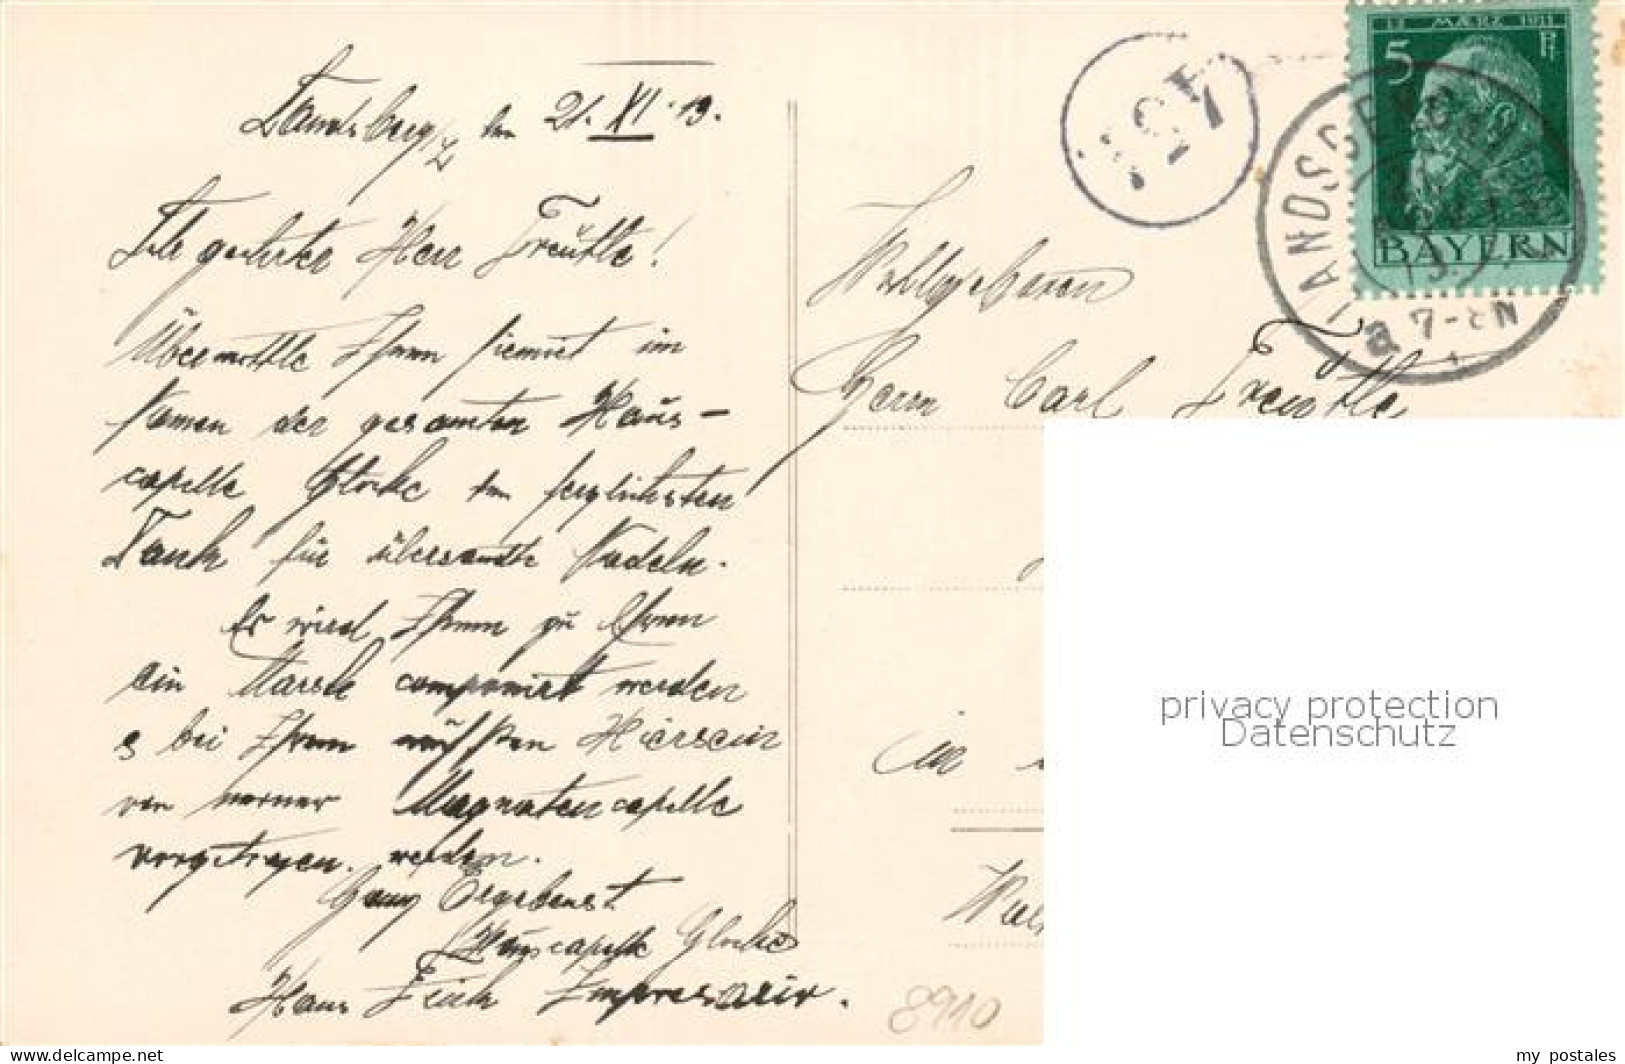 Landsberg/L den 21. XI. 13.
Sehr geehrter Herr Treutle!
Übermittle Ihnen hiemit im
Namen der gesamten Haus-
capelle Glocke den herzlichsten
Dank für übersandte Nadeln.
Es wird Ihnen zu Ehren
ein Marsch componirt werden
bei Ihrem Hiersein
von Magnatencapelle
vorgetragen werden.
Ganz Ergebenst
Hauscapelle Glocke
Hans Impresario.
Wohlgeboren
Herrn Carl Treutle
in
8910
12 MÆRZ 1911
5 Pf
BAYERN
LANDSBERG
a 7-8N
privacy protection
Datenschutz
my postales